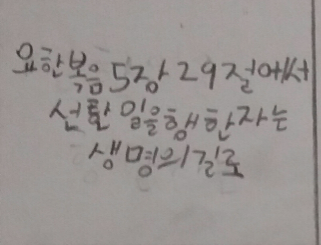 요한복음 5장 29절에서
선한 일을 행한자는
생명의길로